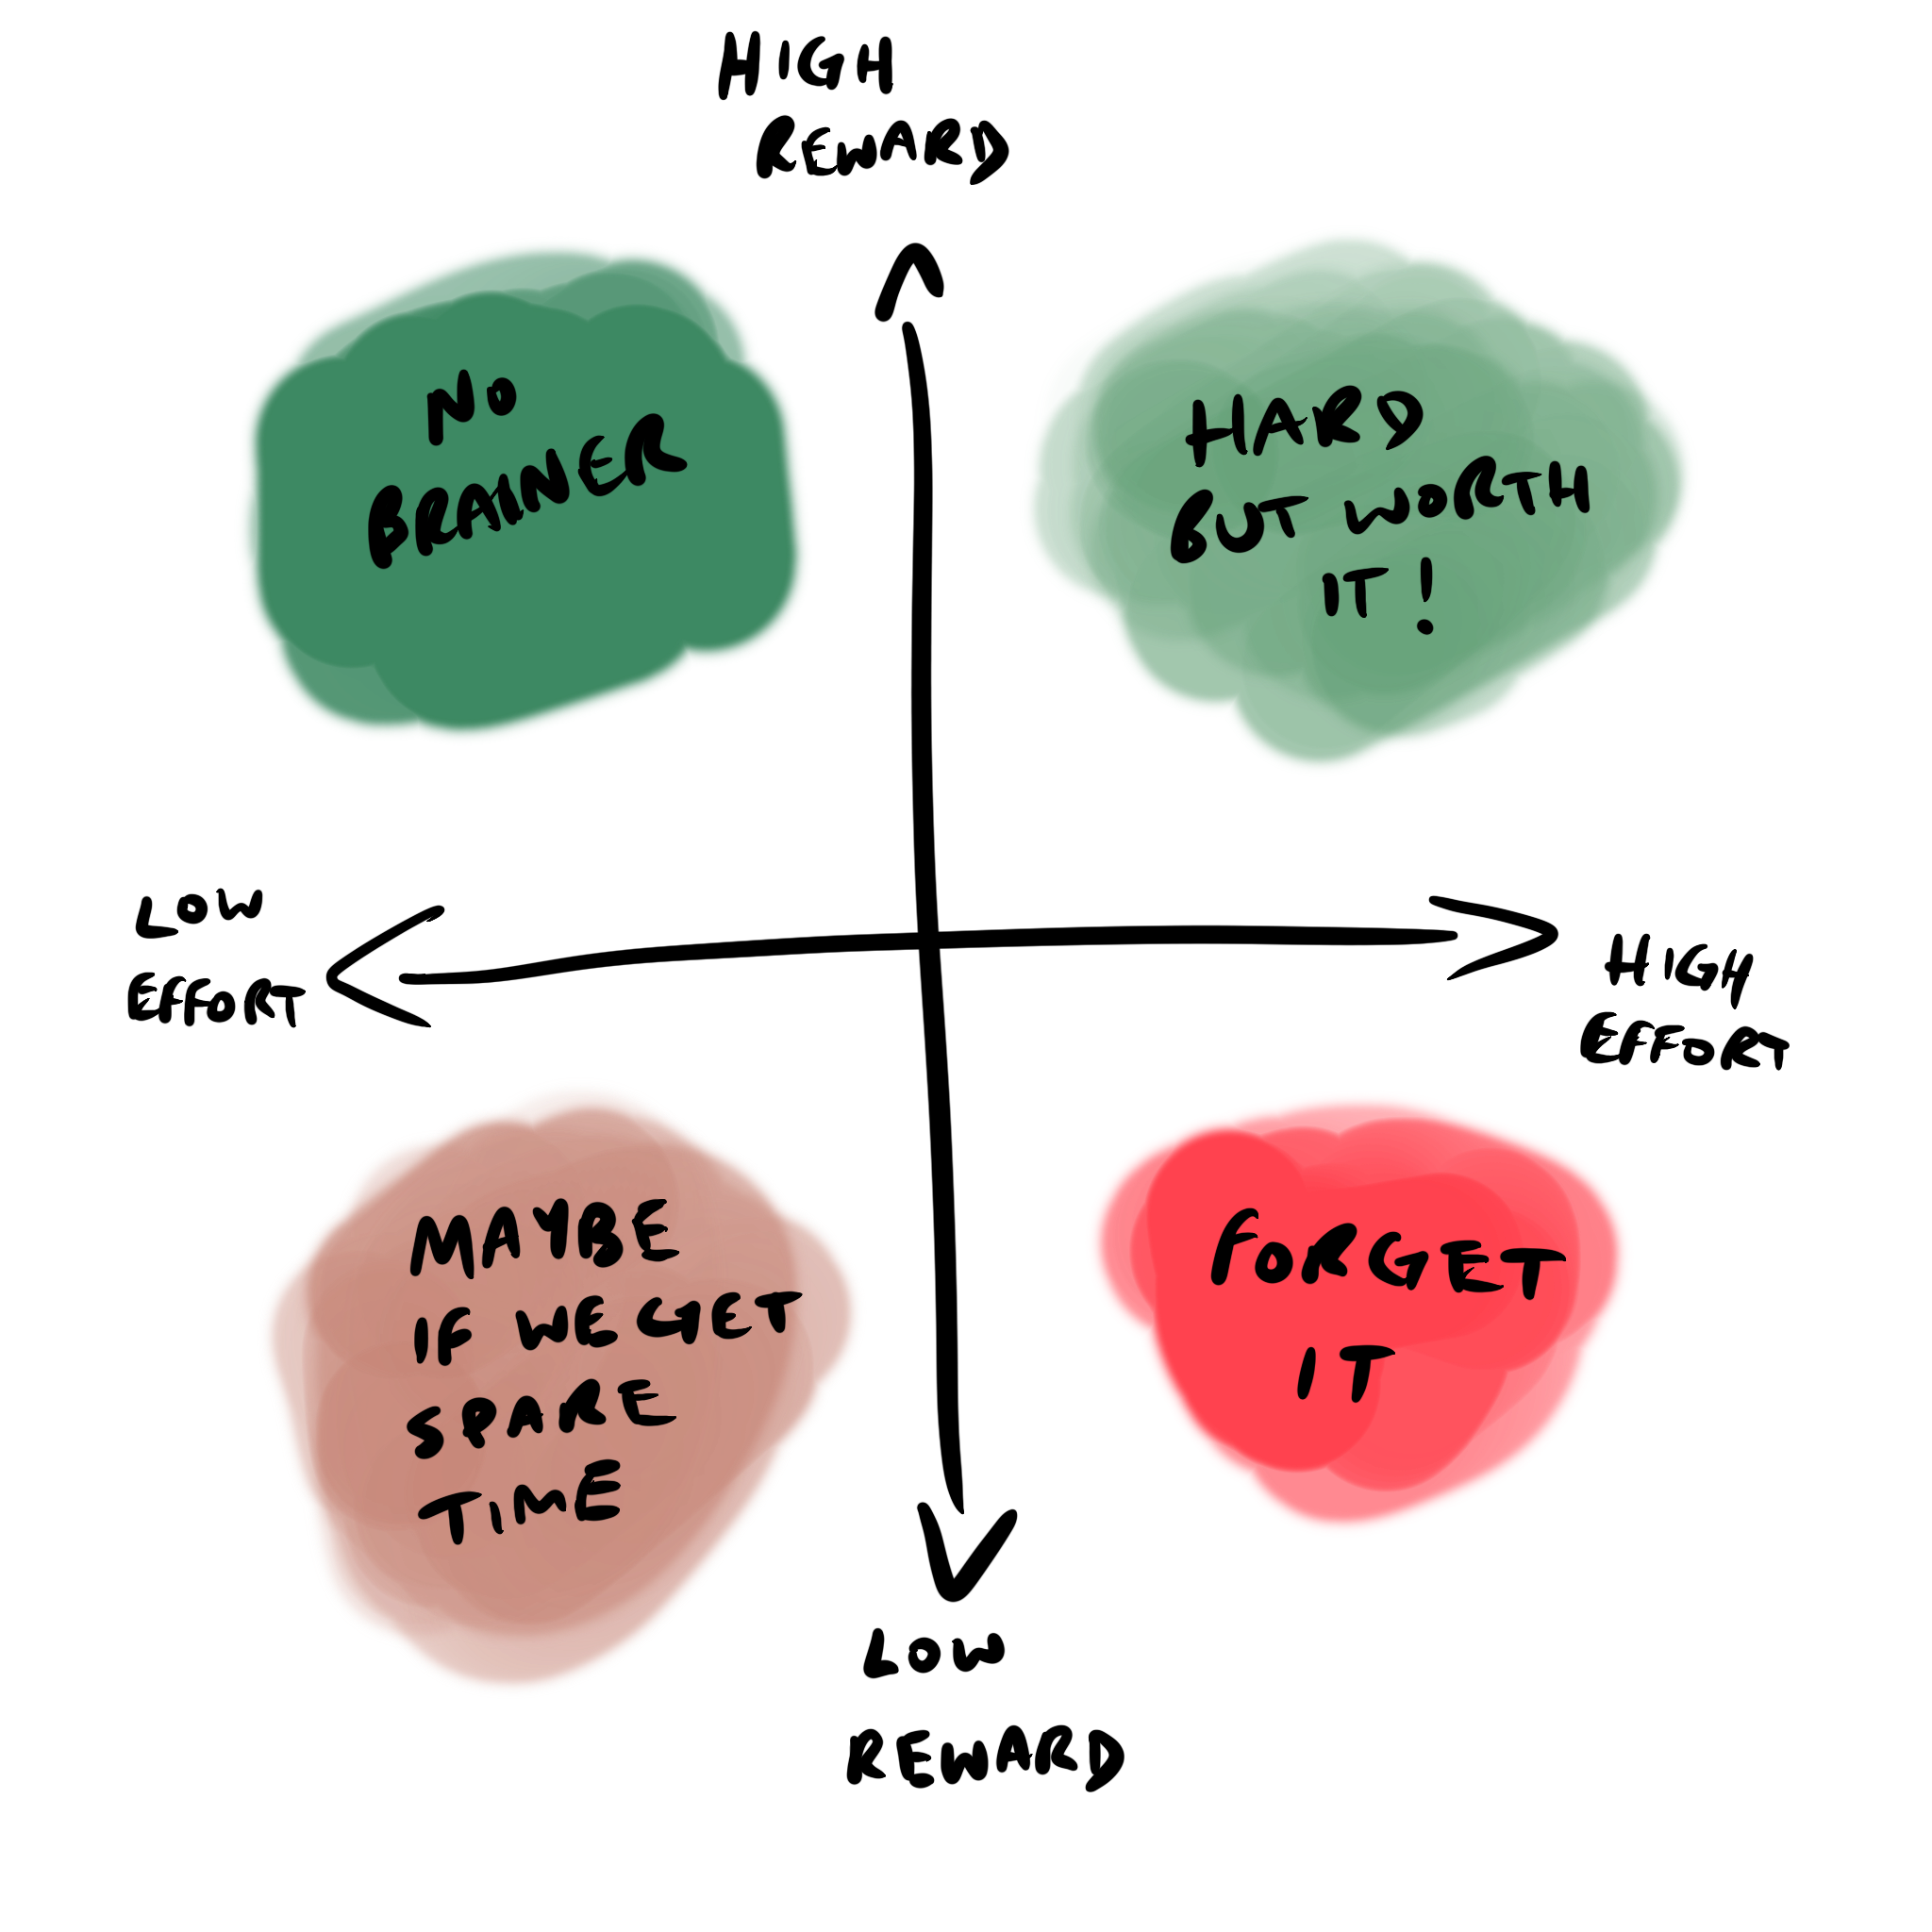 HIGH
REWARD
NO
BRAINER
HARD
BUT WORTH
IT!
LOW
EFFORT
HIGH
EFFORT
MAYBE
IF WE GET
SPARE
TIME
FORGET
IT
LOW
REWARD